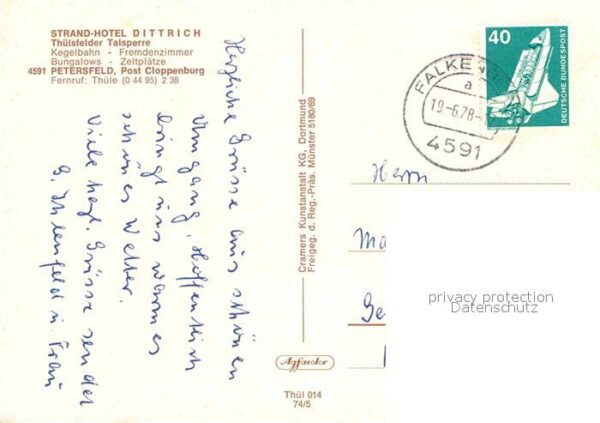 STRAND-HOTEL DITTRICH
Thülsfelder Talsperre
Kegelbahn - Fremdenzimmer
Bungalows - Zeltplätze
4591 PETERSFELD, Post Cloppenburg
Fernruf: Thüle (0 44 95) 2 38
Herzliche Grüsse aus schönen
Umgang, Hoffentlich
bringt uns warmes
schönes Wetter.
Viele herzl. Grüsse sendet
G. Ihlenfeld u Frau
Cramers Kunstanstalt KG, Dortmund
Freigeg. d. Reg.-Präs. Münster 5180/69
Agfacolor
Thül 014
74/5
FALKE
a
19-6.78-
4591
40
DEUTSCHE BUNDESPOST
Herrn
Ma
Ge
privacy protection
Datenschutz